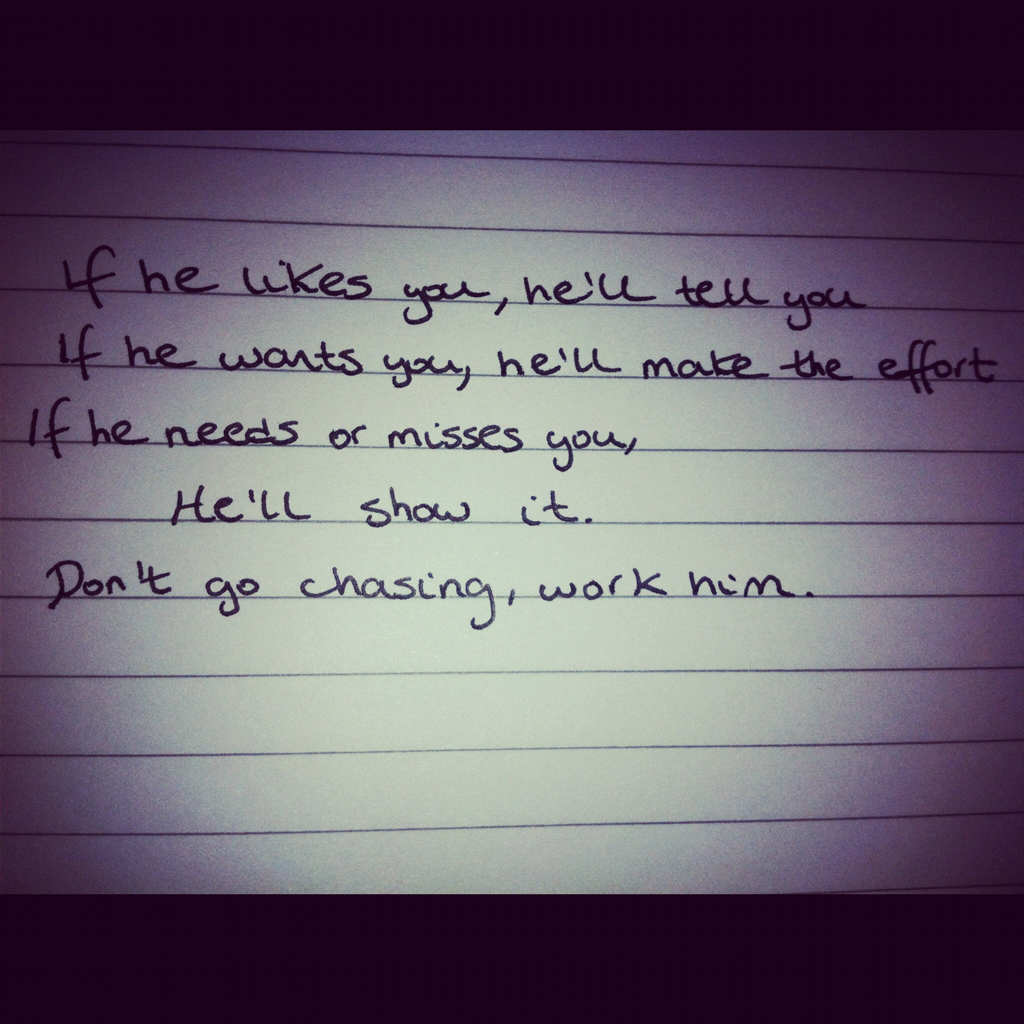 If he likes you, he'll tell you
If he wants you, he'll make the effort
If he needs or misses you,
He'll show it.
Don't go chasing, work him.